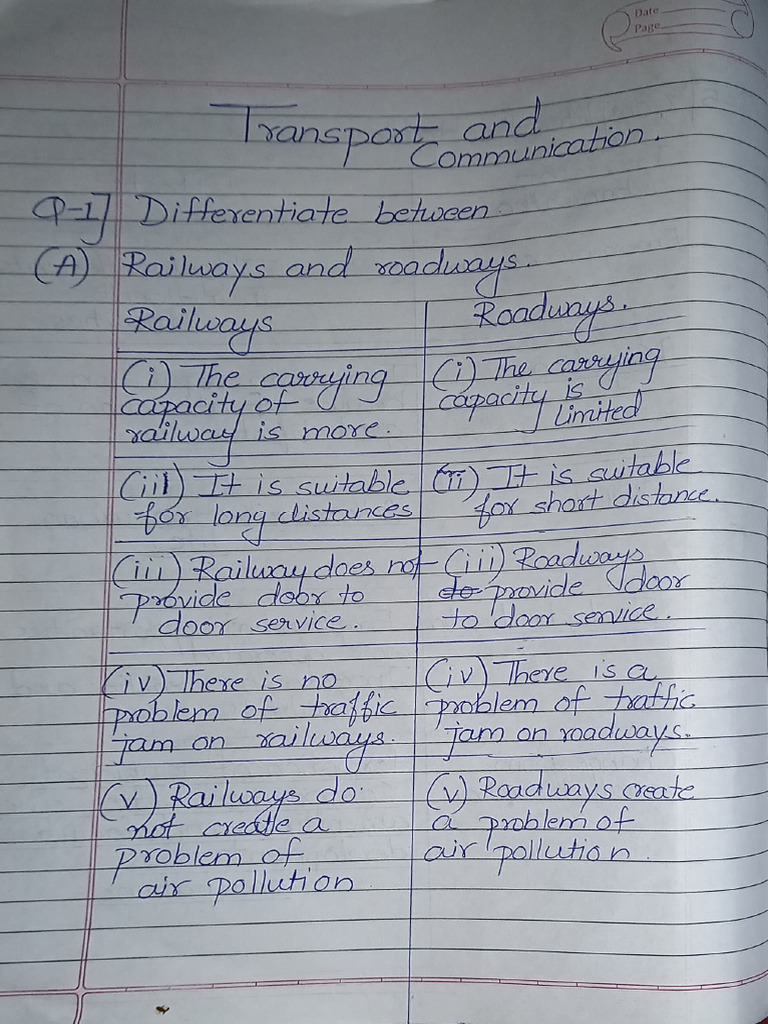 Date
Page
Transport and
Communication.
Q-1] Differentiate between
(A) Railways and roadways.
Railways
(i) The carrying
capacity of
railway is more.
(ii) It is suitable
for long distances
(iii) Railway does not
provide door to
door service.
(iv) There is no
problem of traffic
jam on railways.
(v) Railways do
not create a
problem of
air pollution
Roadways.
(i) The carrying
capacity is
limited
(ii) It is suitable
for short distance.
(iii) Roadways
provide door
to door service.
(iv) There is a
problem of traffic
jam on roadways.
(v) Roadways create
a problem of
air pollution.